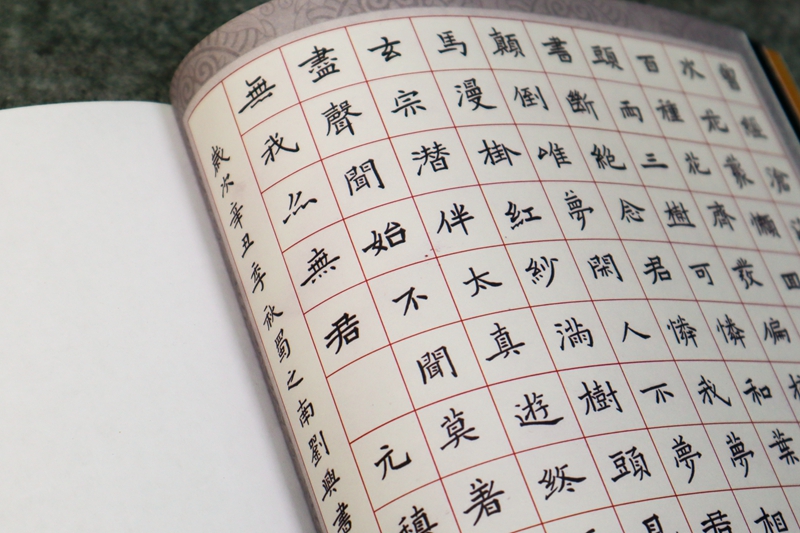 曾經滄
水花叢懶
百種花齊發偏
頭兩三樹可憐和葉
書斷絕念君憐我夢相
顛倒唯夢閑人不夢君
馬漫掛紅紗滿樹頭見
玄宗潛伴太真遊終
盡聲聞始不聞莫著
無我亦無君元稹
歲次辛丑季秋蜀之南劉興書